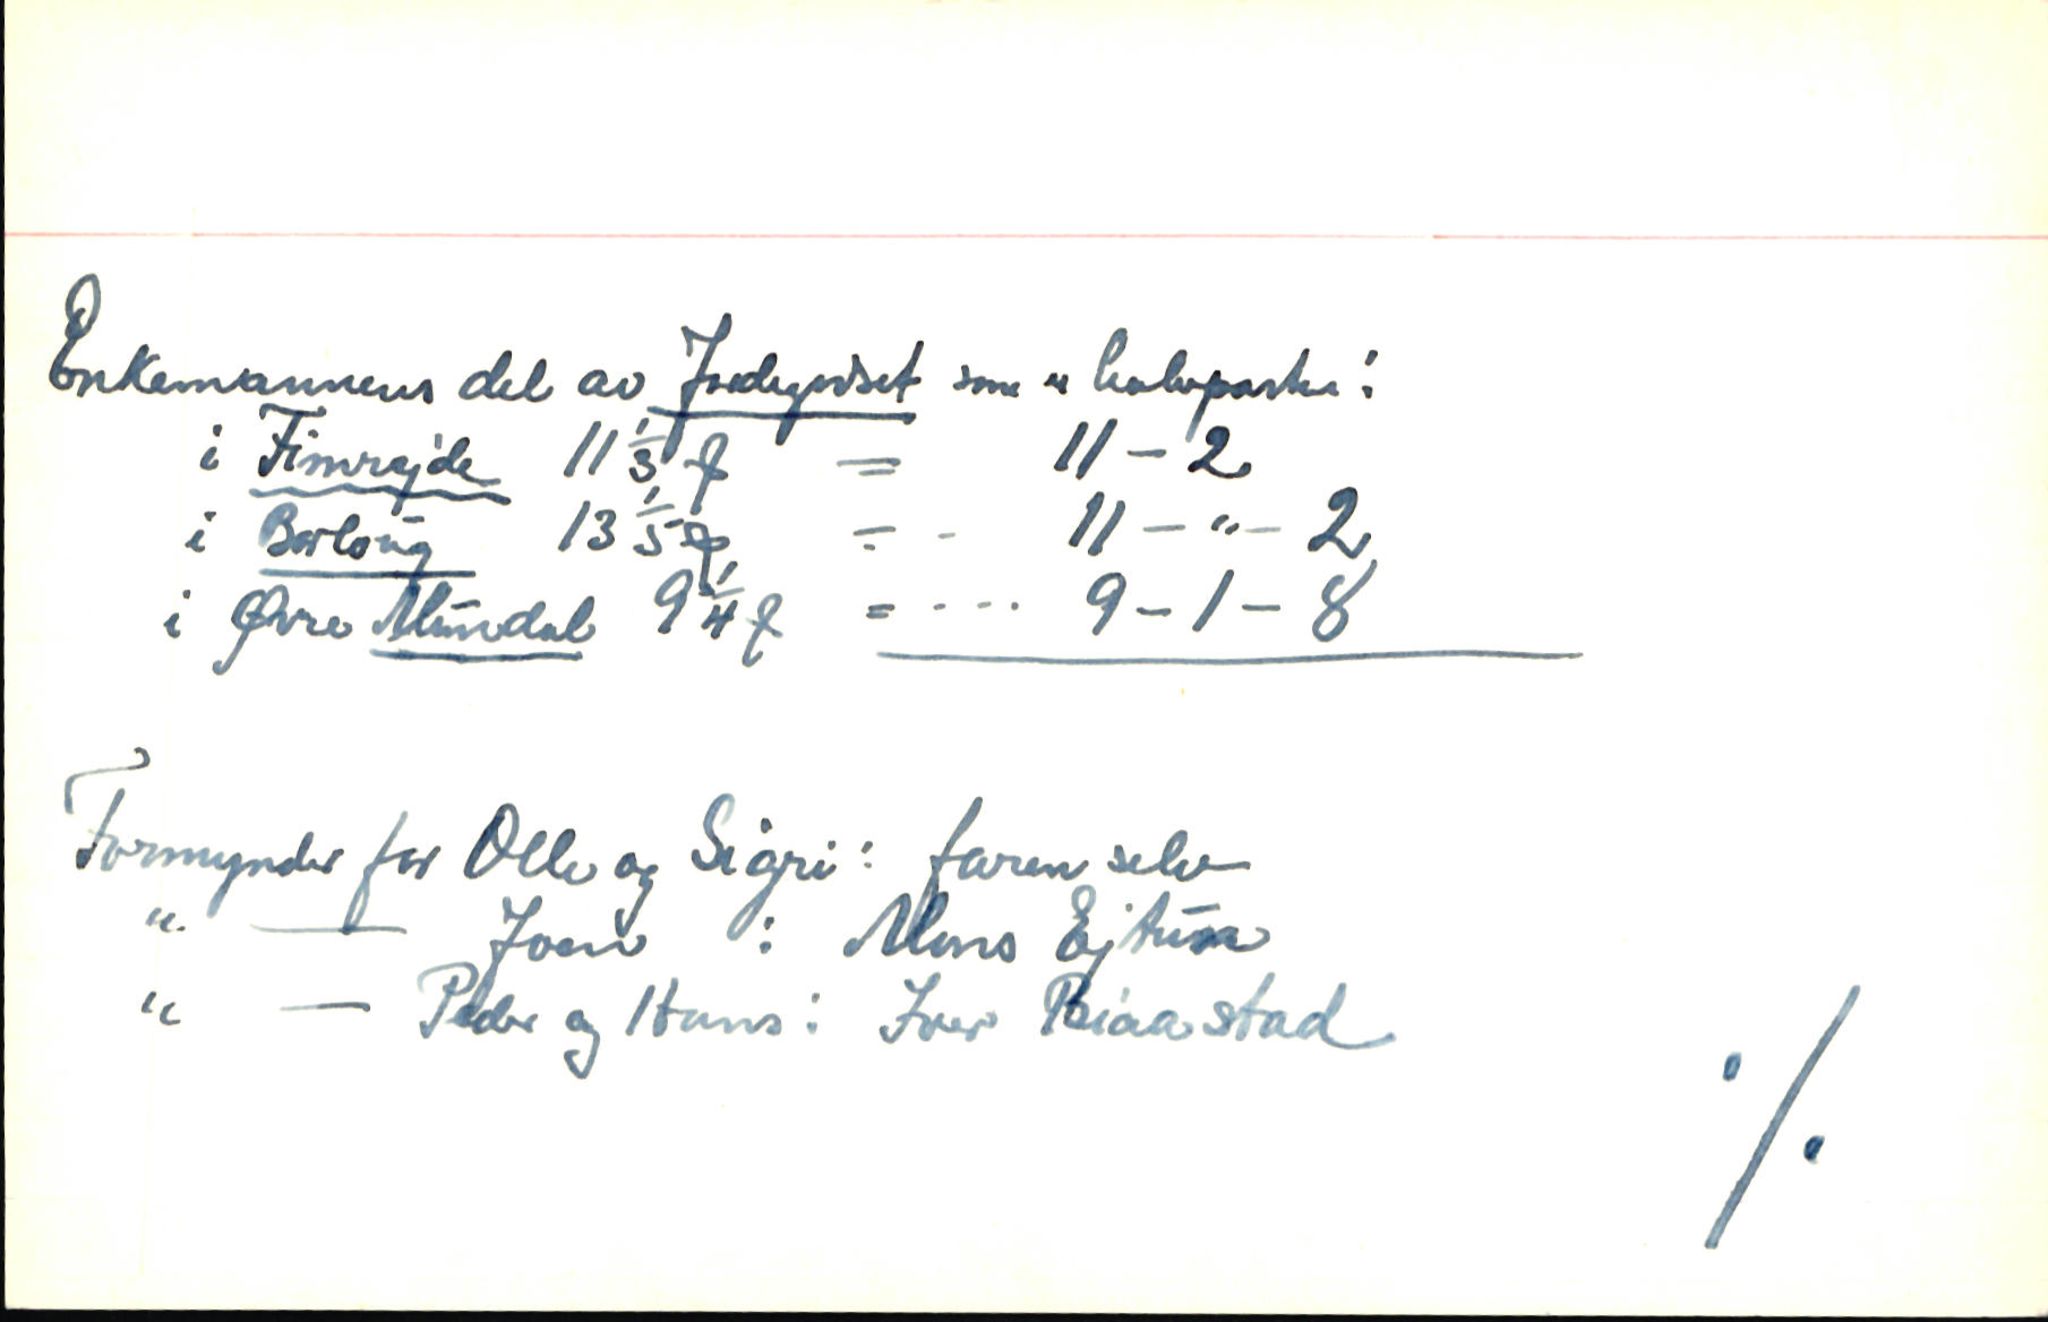 Enkemannens del av Jordegodset som er halvparten:
i Fimrejde 11 1/3 = 11 - 2
i Borlaug 13 1/5 = - 11 - " - 2
i Øvre Mundal 9 1/4 = - - - - 9 - 1 - 8
Formynder for Olle og Sigri: faren selv
" — Joen : Mons Ejtun
" — Peder og Hans: Iver Biaastad
./.